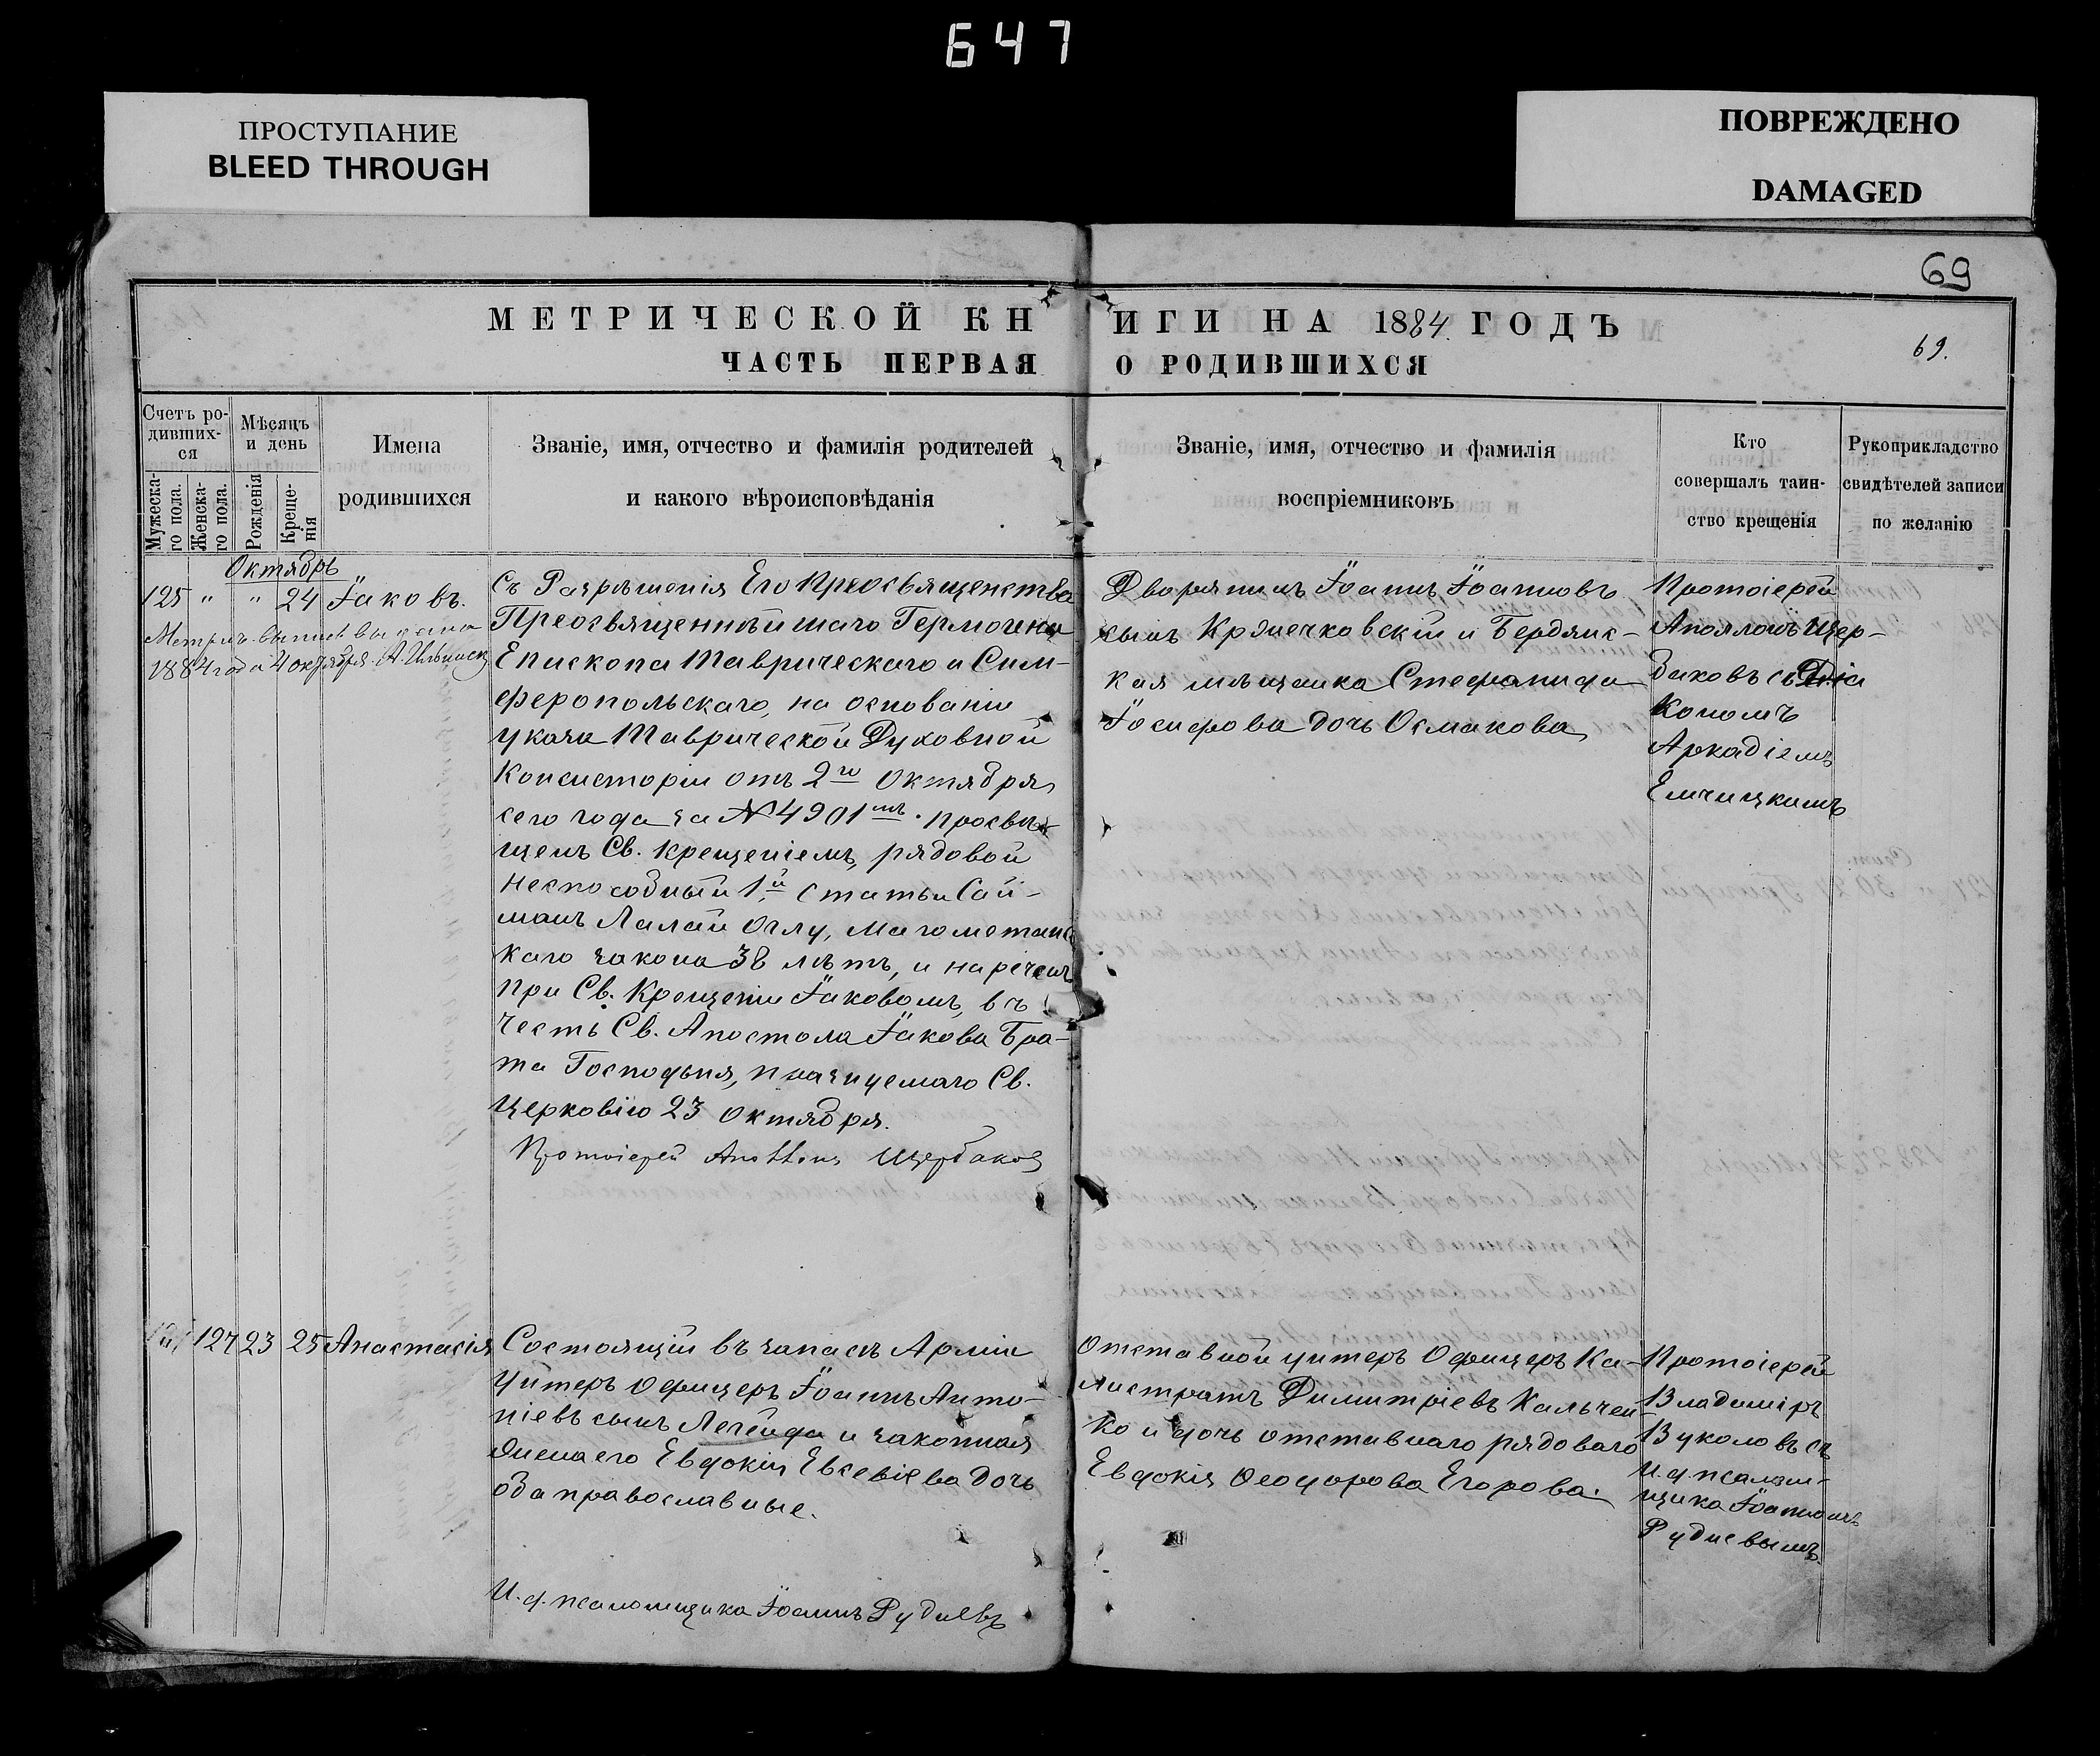 647
ПРОСТУПАНИЕ
BLEED THROUGH
ПОВРЕЖДЕНО
DAMAGED
69
МЕТРИЧЕСКОЙ КНИГИ НА 1884. ГОДЪ
ЧАСТЬ ПЕРВАЯ О РОДИВШИХСЯ
69.
Счетъ ро-
дивших-
ся
Мужеска-
го пола.
Женска-
го пола.
Мѣсяцъ
и день
Рожденія
Креще-
нія
Имена
родившихся
Званіе, имя, отчество и фамилія родителей
и какого вѣроисповѣданія
Званіе, имя, отчество и фамилія
воспріемниковъ
Кто
совершалъ таин-
ство крещенія
Рукоприкладство
свидѣтелей записи
по желанію
Октябрь
125 " " 24 Іаковъ.
Метрич. выпись выдана
1884 года октября
Съ Разрѣшенія Его Преосвященства
Преосвященнѣйшаго Гермогена
Епископа Таврическаго и Сим-
феропольскаго, на основаніи
указа Таврической Духовной
Консисторіи отъ 2го Октября
сего года за № 4901мъ. просвѣ-
щенъ Св. Крещеніемъ, рядовой
неспособный 1й статьи Сай-
манъ Лалай Оглу, магометанс
каго закона 38 лѣтъ, и нареченъ
при Св. Крещеніи Іаковомъ, въ
честь Св. Апостола Іакова Бра-
та Господня, празднуемаго Св.
Церковію 23 Октября.
Протоіерей Аполлонъ Щербаковъ
Дворянинъ Іоаннъ Іоанновъ
сынъ Крянечковскій и Бердянс-
кая мѣщанка Стефанида
Іосифова дочь Осмакова
Протоіерей
Аполлонъ Щер-
баковъ съ Діа
кономъ
Аркадіемъ
Емчицкимъ
127 23 25 Анастасія
Состоящій въ запасѣ Арміи
Унтеръ Офицеръ Іоаннъ Анто-
ніевъ сынъ Легейда и законная
жена его Евдокія Евсевіева дочь
оба православные.
И. д. псаломщика Іоаннъ Рудневъ
Отставной унтеръ Офицеръ Ка-
листратъ Димитріевъ Кальчен-
ко и дочь отставнаго рядоваго
Евдокія Ѳеодорова Егорова.
Протоіерей
Владиміръ
Вуколовъ съ
И. д. псалом-
щика Іоанномъ
Рудневымъ.